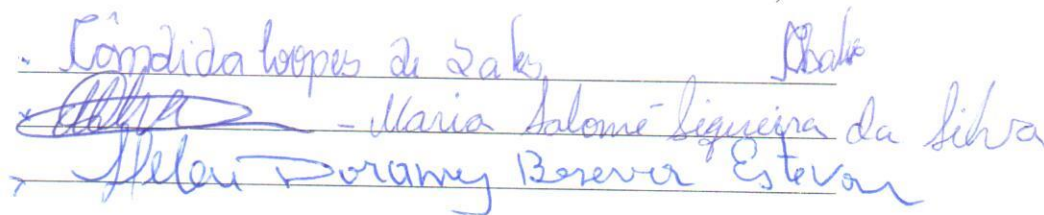 Cândida Loopes de Sales
- Maria Salomé Siqueira da Silva
Helen Doramy Beserra Estevam